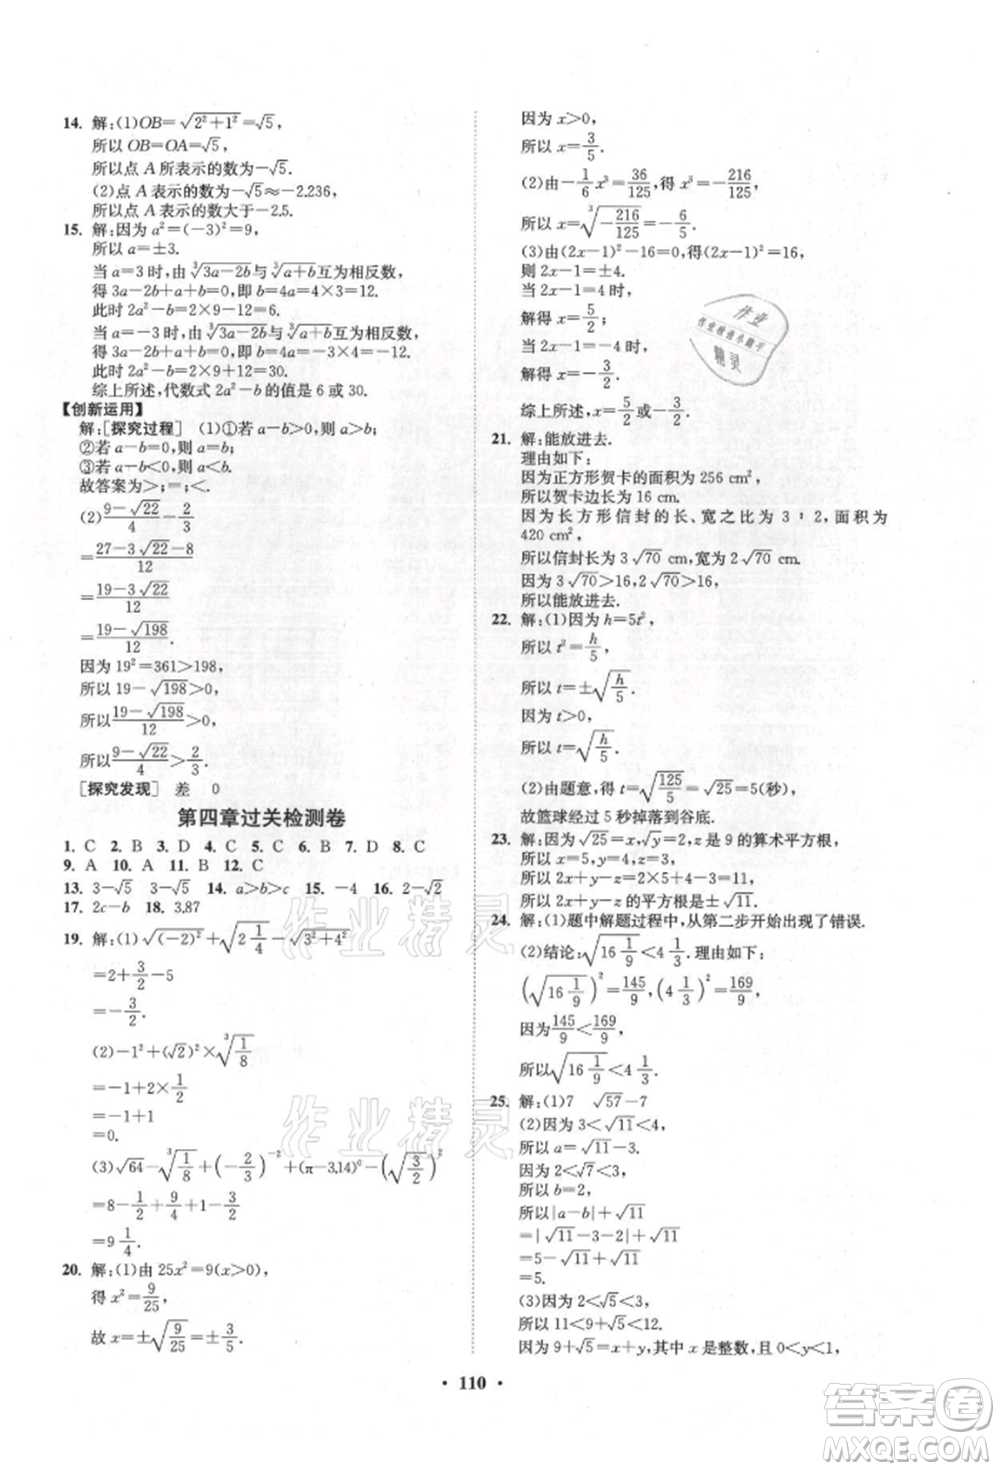 14. 解:(1)OB=√(2²+1²)=√5,
所以 OB=OA=√5,
所以点 A 所表示的数为-√5.
(2)点 A 表示的数为-√5≈-2.236,
所以点 A 表示的数大于-2.5.
15. 解:因为 a²=(-3)²=9,
所以 a=±3.
当 a=3 时,由∛(3a-2b)与∛(a+b)互为相反数,
得 3a-2b+a+b=0,解得 b=4a=12.
此时 2a²-b=2×9-12=6.
当 a=-3 时,由∛(3a-2b)与∛(a+b)互为相反数,
得 3a-2b+a+b=0,解得 b=4a=-3×4=-12.
此时 2a²-b=2×9+12=30.
综上所述,代数式 2a²-b 的值是 6 或 30.
【创新运用】
解:[探究过程] (1)①若 a-b>0,则 a>b;
②若 a-b=0,则 a=b;
③若 a-b<0,则 a<b.
故答案为>;=;<.
(2)(9-√22)/4-2/3
=(27-3√22-8)/12
=(19-3√22)/12
=(19-√198)/12.
因为 19²=361>198,
所以 19-√198>0,
所以(19-√198)/12>0,
所以(9-√22)/4>2/3.
[探究发现] 差 0
第四章过关检测卷
1. C 2. B 3. D 4. C 5. C 6. B 7. D 8. C
9. A 10. A 11. B 12. C
13. 3-√5 √5-3 14. a>b>c 15. -4 16. 2-√2
17. 2c-b 18. 3.87
19. 解:(1)√((-2)²)+√(2 1/4)-√(3²+4²)
=2+3/2-5
=-3/2.
(2)-1²+(√2)²×∛(1/8)
=-1+2×1/2
=-1+1
=0.
(3)√64-∛(1/8)+(-2/3)⁻²+(π-3.14)⁰-(√(3/2))²
=8-1/2+9/4+1-3/2
=9 1/4.
20. 解:(1)由 25x²=9(x>0),
得 x²=9/25,
故 x=±√(9/25)=±3/5.
因为 x>0,
所以 x=3/5.
(2)由-1/6x³=36/125,得 x³=-216/125,
所以 x=∛(-216/125)=-6/5.
(3)由(2x-1)²-16=0,得(2x-1)²=16,
则 2x-1=±4.
当 2x-1=4 时,
解得 x=5/2;
当 2x-1=-4 时,
解得 x=-3/2.
综上所述,x=5/2或 x=-3/2.
21. 解:能放进去.
理由如下:
因为正方形贺卡的面积为 256 cm²,
所以贺卡边长为 16 cm.
因为长方形信封的长、宽之比为 3∶2,面积为
420 cm²,
所以信封长为 3√70 cm,宽为 2√70 cm.
因为 3√70>16,2√70>16,
所以能放进去.
22. 解:(1)因为 h=5t²,
所以 t²=h/5,
所以 t=±√(h/5).
因为 t>0,
所以 t=√(h/5).
(2)由题意,得 t=√(125/5)=√25=5(秒),
故篮球经过 5 秒掉落到谷底.
23. 解:因为√25=x,√y=2,z 是 9 的算术平方根,
所以 x=5,y=4,z=3,
所以 2x+y-z=2×5+4-3=11,
所以 2x+y-z 的平方根是±√11.
24. 解:(1)题中解题过程中,从第二步开始出现了错误.
(2)结论:√(16 1/9)<4 1/3.理由如下:
(√(16 1/9))²=145/9,(4 1/3)²=169/9.
因为145/9<169/9,
所以√(16 1/9)<4 1/3.
25. 解:(1)7 √57-7
(2)因为 3<√11<4,
所以 a=√11-3.
因为 2<√7<3,
所以 b=2,
所以|a-b|+√11
=|√11-3-2|+√11
=5-√11+√11
=5.
(3)因为 2<√5<3,
所以 11<9+√5<12.
因为 9+√5=x+y,其中 x 是整数,且 0<y<1,
• 110 •
作业
作业检查小助手
精灵
作业精灵
作业精灵
答案圈
MXQE.COM